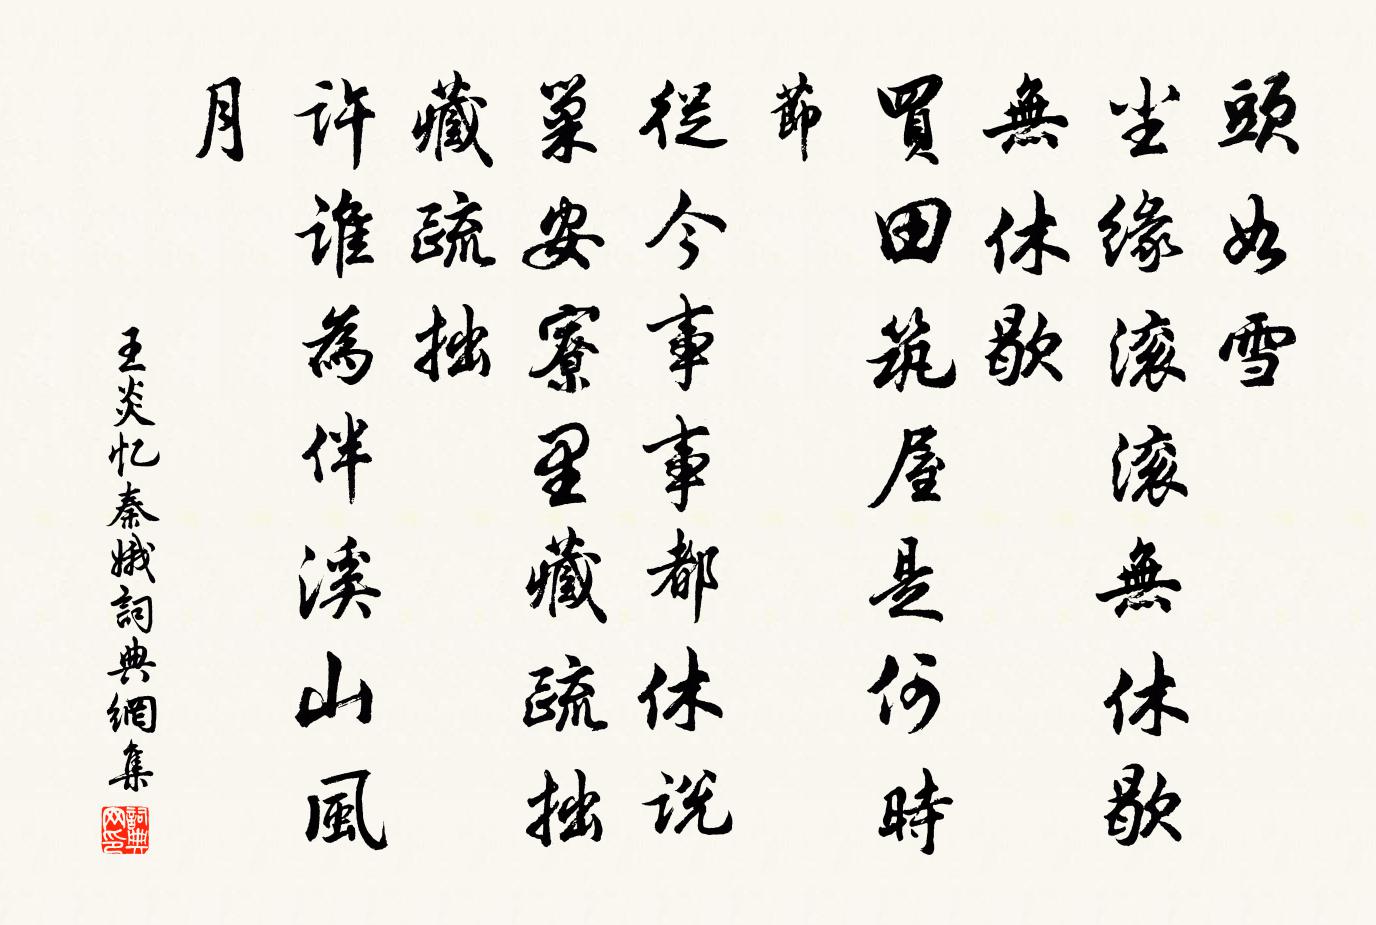 頭如雪
尘緣滚滚無休歇
無休歇
買田筑屋是何時
節
從今事事都休説
巢安寮里藏疏拙
藏疏拙
許誰為伴溪山風
月
王炎忆秦娥詞典網集
詞典网印